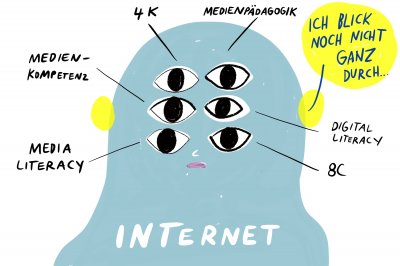 4K
MEDIENPÄDAGOGIK
ICH BLICK
NOCH NICHT
GANZ
DURCH...
MEDIEN-
KOMPETENZ
DIGITAL
LITERACY
MEDIA
LITERACY
8C
INTERNET